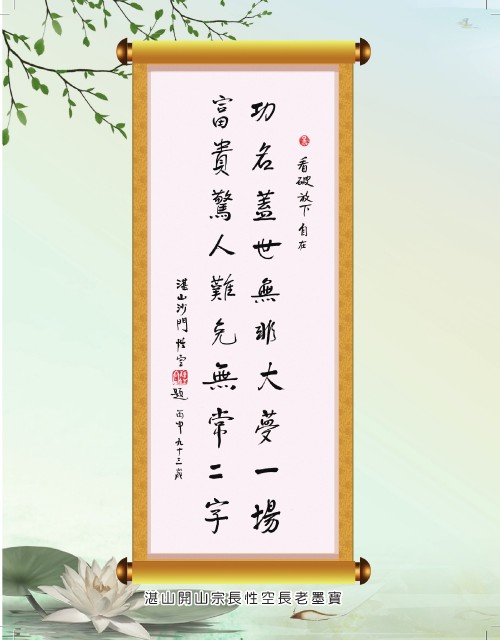 看破放下自在
功名蓋世無非大夢一場
富貴驚人難免無常二字
湛山沙門性空題丙申九十三歲
湛山開山宗長性空長老墨寶